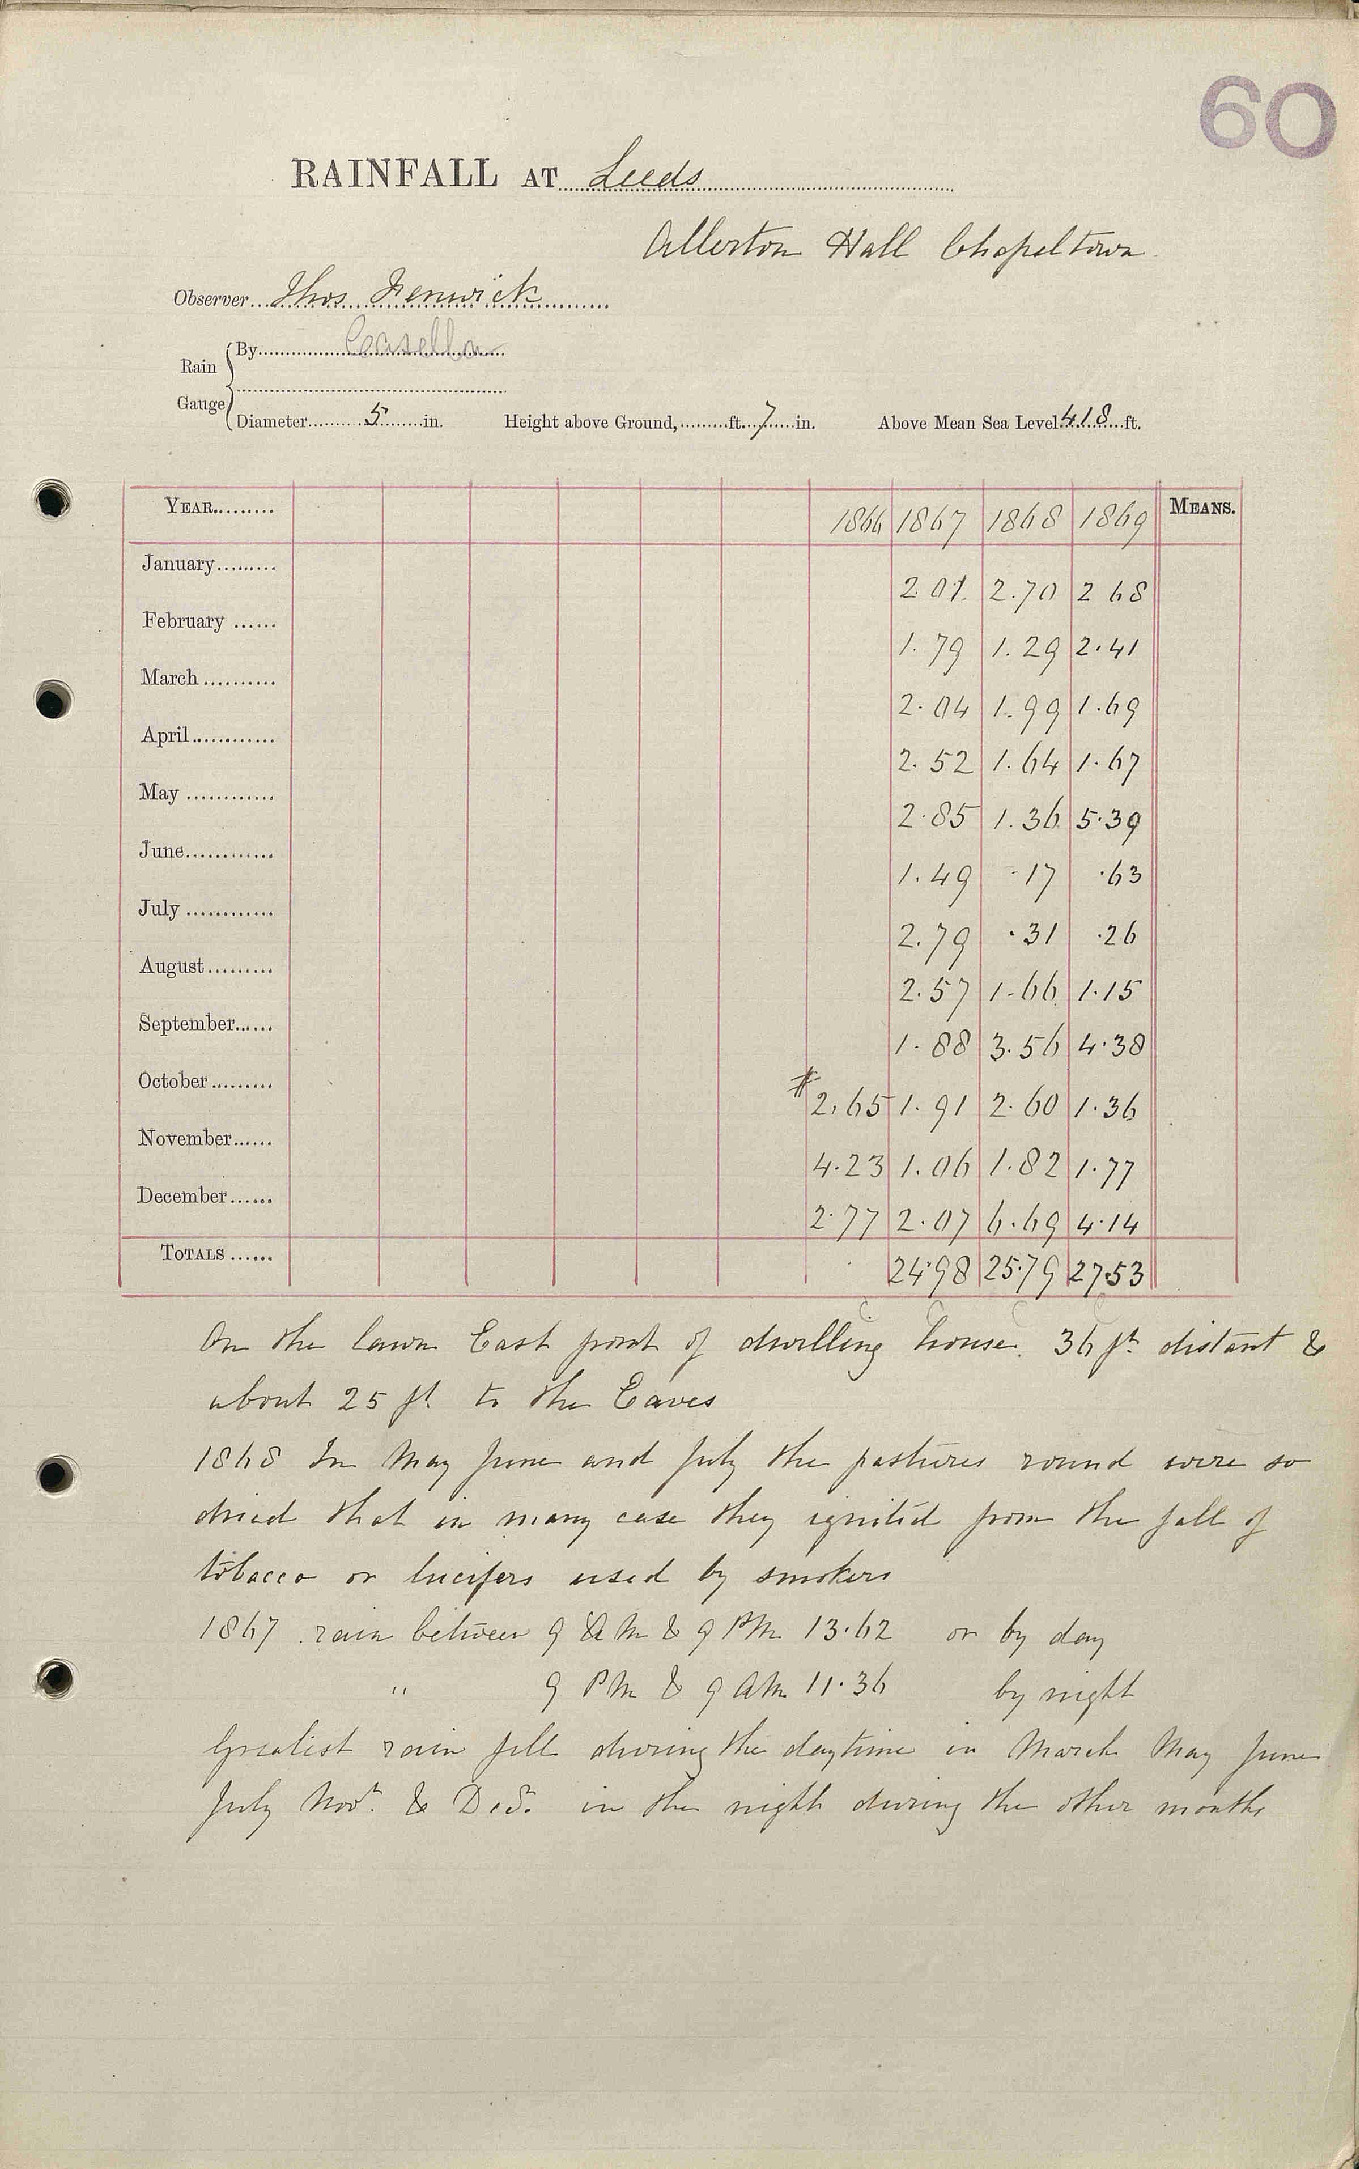 60
RAINFALL AT Leeds
Allerton Hall Chapeltown
Observer Thos Fenwick
Rain Gauge
By Casella
Diameter 5 in. Height above Ground, ft. 7 in. Above Mean Sea Level 418 ft.
YEAR 1866 1867 1868 1869 MEANS.
January 2.01 2.70 2 68
February 1.79 1.29 2.41
March 2.04 1.99 1.69
April 2.52 1.64 1.67
May 2.85 1.36 5.39
June 1.49 .17 .63
July 2.79 .31 .26
August 2.57 1.66 1.15
September 1.88 3.56 4.38
October # 2.65 1.91 2.60 1.36
November 4.23 1.06 1.82 1.77
December 2.77 2.07 6.69 4.14
TOTALS 24.98 25.79 27.53
On the lawn East front of dwelling house. 36 ft distant &
about 25 ft to the Eaves
1868 In May June and July the pastures round were so
dried that in many case they ignited from the fall of
tobacco or lucifers used by smokers
1867 rain between 9 AM & 9 PM 13.62 or by day
" 9 PM & 9 AM 11.36 by night
Greatest rain fell during the daytime in March May June
July Nov. & Dec. in the night during the other months